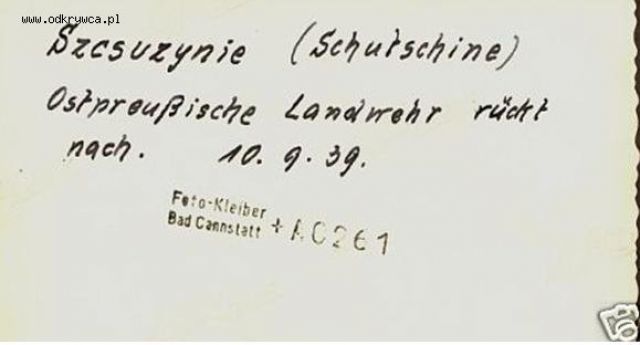 www.odkrywca.pl
Szcsuzynie (Schutschine)
Ostpreußische Landwehr rückt
nach. 10. 9. 39.
Foto-Kleiber
Bad Cannstatt + AC261